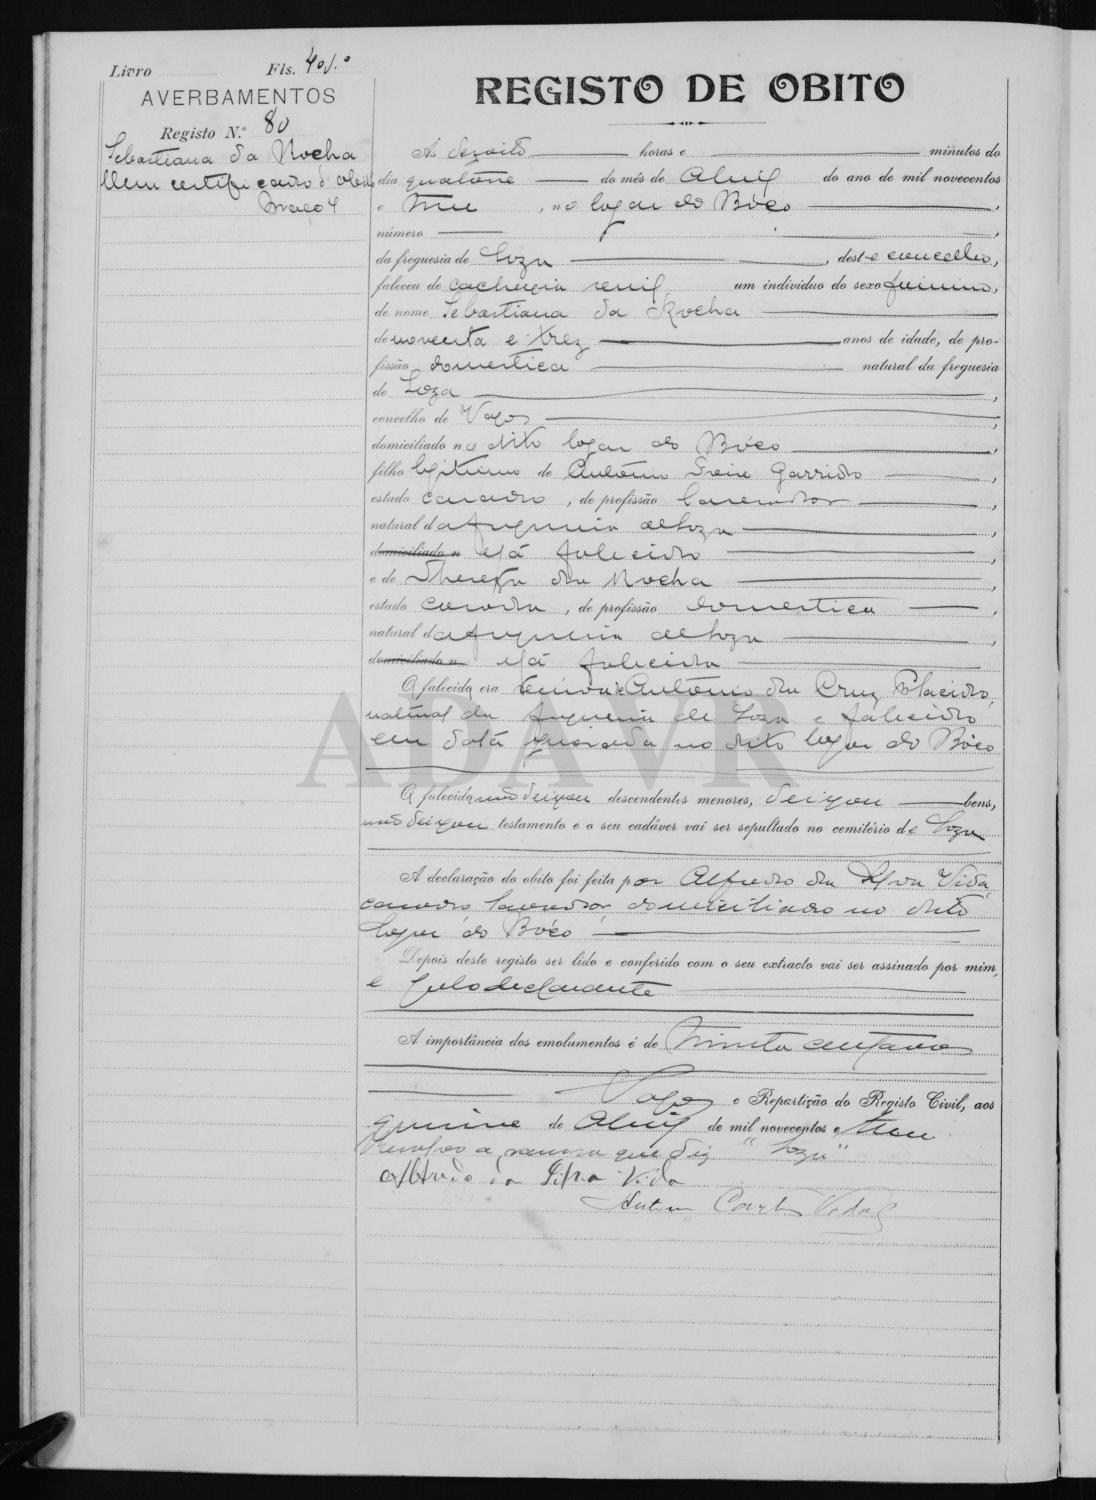 Livro Fls. 40v.º
AVERBAMENTOS
Registo N.º 80
Sebastiana da Rocha
Um certificado d'obito
Março 4
REGISTO DE OBITO
Ás dezoito horas e minutos do
dia quatorze do mês de Abril do ano de mil novecentos
e treze, no logar do Bóco,
número ,
da freguesia de Soza, deste concelho,
faleceu de cachexia senil um individuo do sexo feminino,
de nome Sebastiana da Rocha
de noventa e trez anos de idade, de pro-
fissão domestica natural da freguesia
de Soza,
concelho de Vagos,
domiciliado no dito logar do Bóco,
filho legitimo de António Garrido,
estado casado, de profissão lavrador,
natural da freguesia de Soza,
domiciliado n e já falecido,
e de Thereza da Rocha,
estado casada, de profissão domestica,
natural da freguesia de Soza,
domiciliado n e já falecida
O falecido era viuva de António da Cruz Placido,
natural da freguesia de Soza e falecido
em data ignorada no dito logar do Bóco
O falecido não deixou descendentes menores, deixou bens,
não deixou testamento e o seu cadáver vai ser sepultado no cemitério de Soza
A declaração do obito foi feita por Alfredo da Silva Vida,
casado, lavrador, domiciliado no dito
logar do Bóco
Depois deste registo ser lido e conferido com o seu extracto vai ser assinado por mim,
e pelo declarante
A importância dos emolumentos é de trinta centavos
Vagos e Repartição do Registo Civil, aos
quinze de Abril de mil novecentos e treze
Ressalvo a rasura que diz "Soza"
Alfredo da Silva Vida
Carlos Vidal
ADAVR